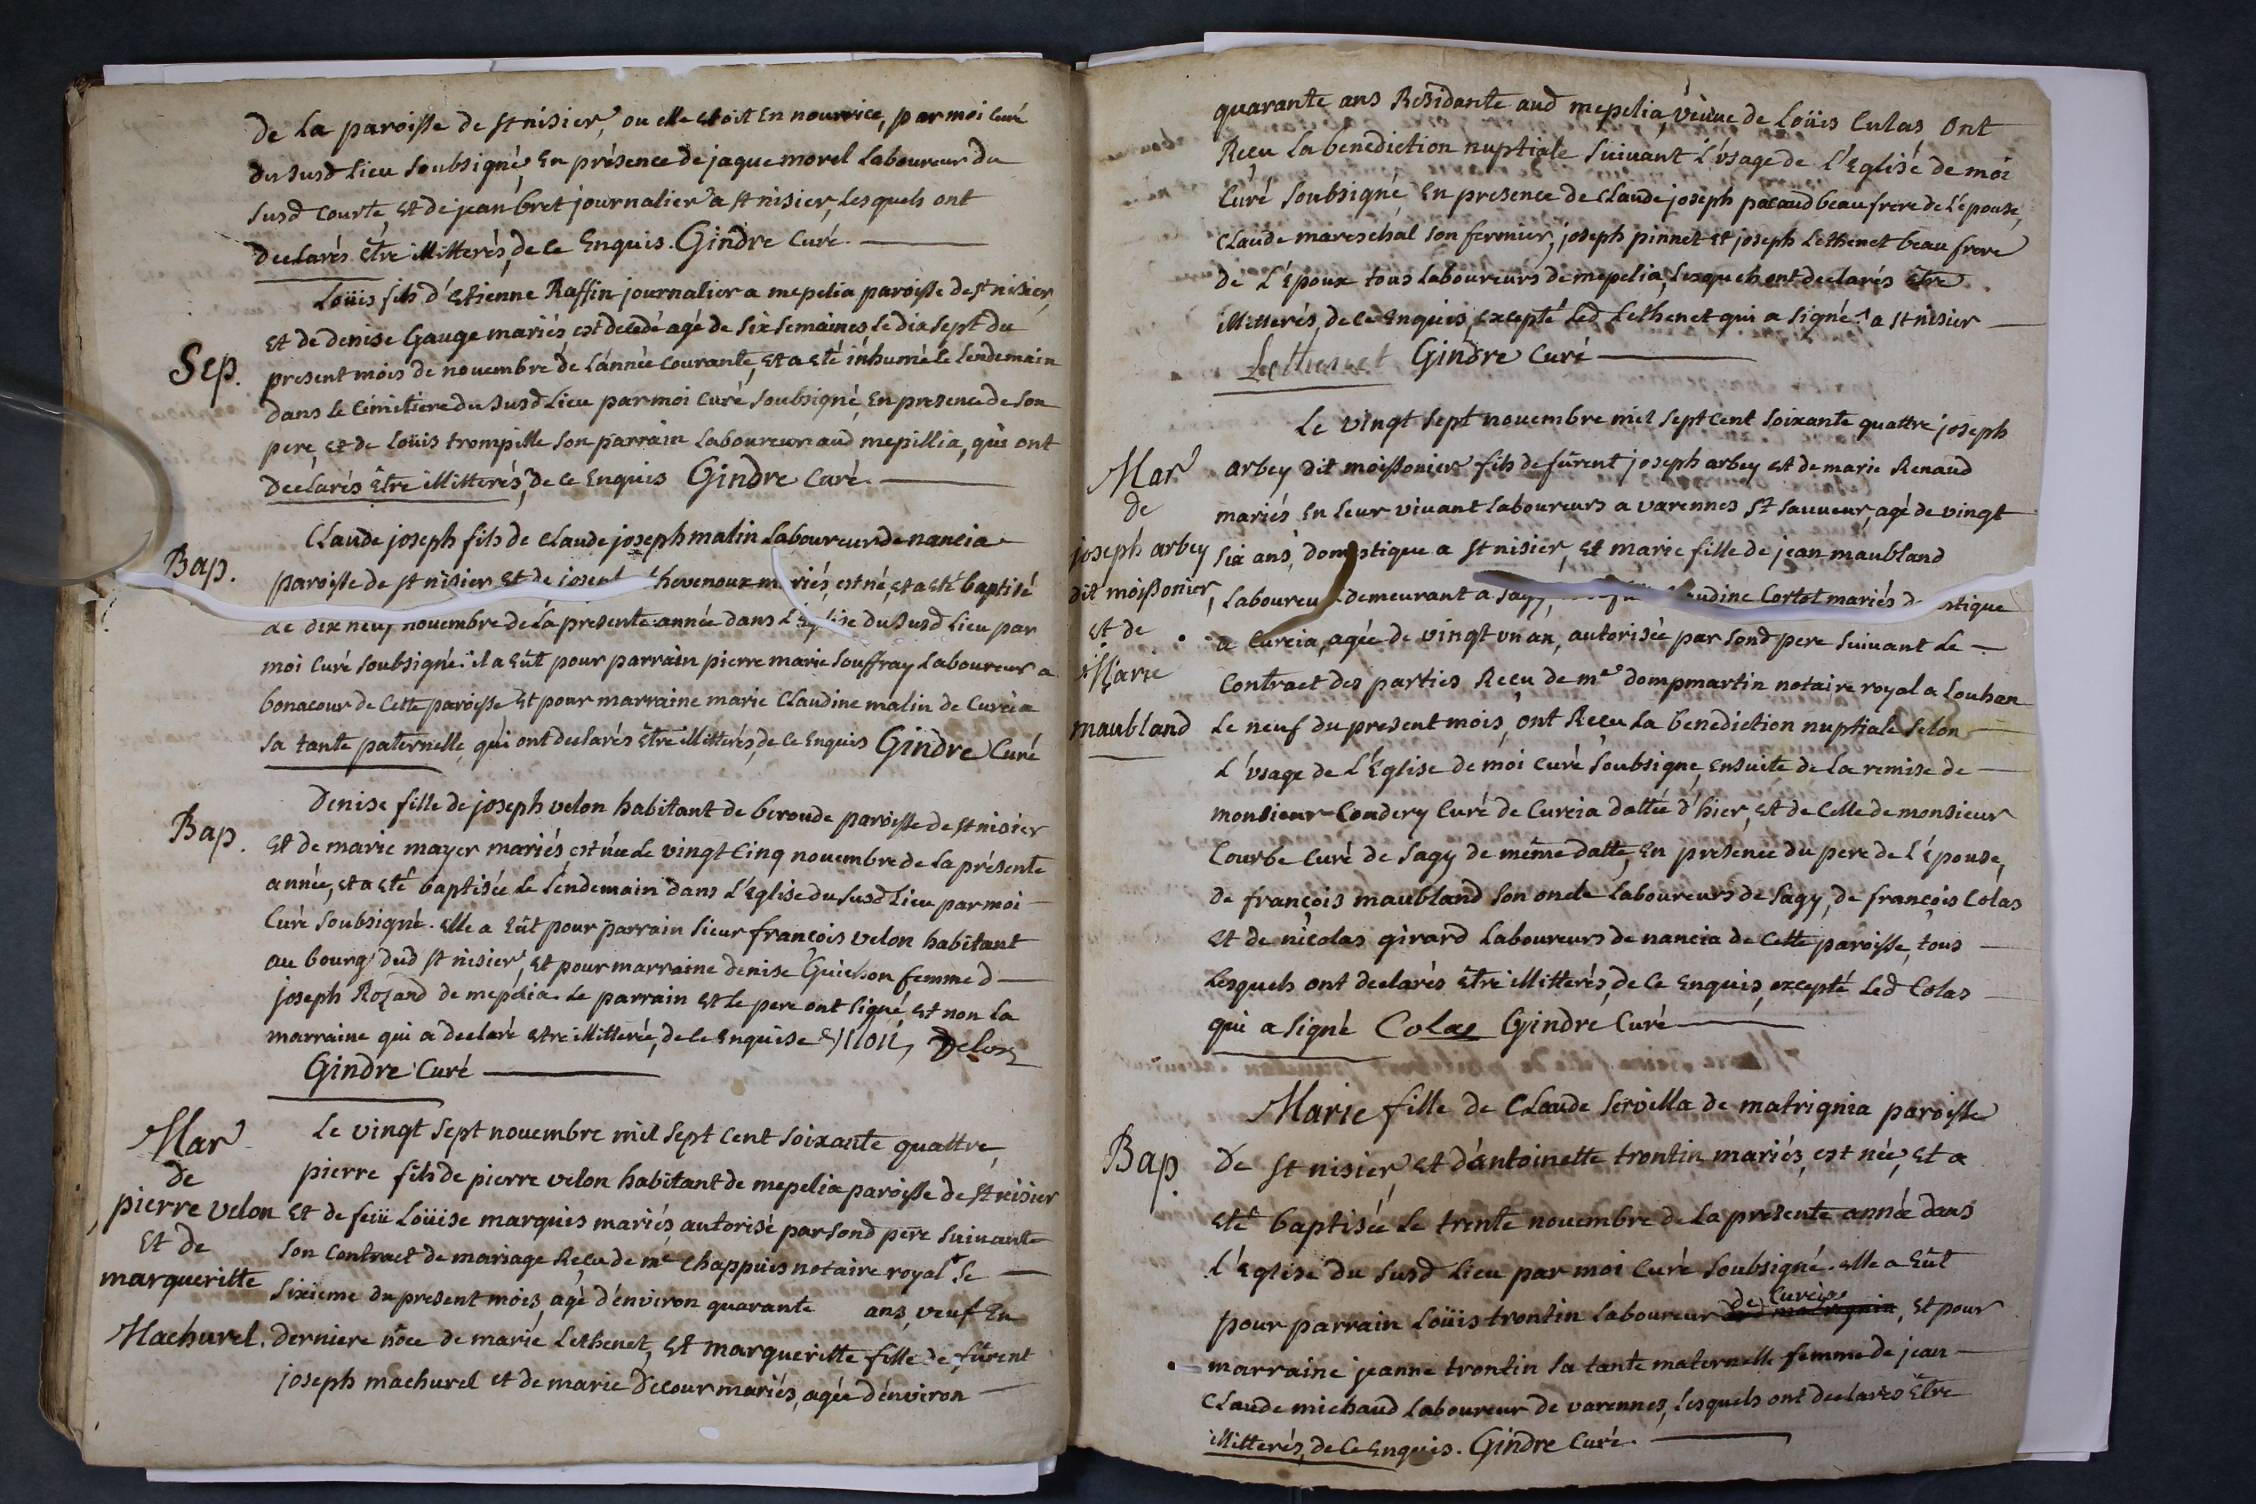 de la paroisse de st nisier, ou elle etoit en nourrice, par moi curé
du susd lieu soubsigné, en présence de jaque morel laboureur du
susd courte et de jean bret journalier a st nisier, lesquels ont
declarés être illitterés, de ce enquis. Gindre curé.
Loüis fils d'etienne Raffin journalier a mepelia paroisse de st nisier,
et de denise Gauge mariés est decedé agé de six semaines le dix sept du
Sep.
present mois de novembre de l'année courante, et a eté inhumé le lendemain
dans le cimitiere du susd lieu par moi curé soubsigné, en presence de son
pere, et de loüis trompille son parrain laboureur aud mepillia, qui ont
declarés être illitterés, de ce enquis Gindre curé.
Claude joseph fils de claude joseph malin laboureur de nancia
Bap.
paroisse de st nisier et de hevenoux mariés, est né, et a eté baptisé
le dix neuf novembre de la presente année dans l'église du susd lieu par
moi curé soubsigné. il a eüt pour parrain pierre marie souffray laboureur a
bonacour de cette paroisse et pour marraine marie claudine malin de curcia
sa tante paternelle, qui ont declarés être illitterés, de ce enquis Gindre curé
Denise fille de joseph velon habitant de beroude paroisse de st nisier
Bap.
et de marie mayer mariés, est née le vingt cinq novembre de la présente
année, et a eté baptisée le lendemain dans l'église du susd lieu par moi
curé soubsigné. elle a eüt pour parrain sieur françois velon habitant
au bourg dud st nisier, et pour marraine denise Guichon femme d
joseph Rozand de mepelia. le parrain et le pere ont signé, et non la
marraine qui a declaré etre illitterée, de ce enquise velon
Gindre curé
Mar
de
pierre velon
et de
margueritte
Machurel.
Le vingt sept novembre mil sept cent soixante quattre,
pierre fils de pierre velon habitant de mepelia paroisse de st nisier
et de feüe Loüise marquis mariés, autorisé par sond pere suivante
son contract de mariage Reçu de me chappuis notaire royal le
sixieme du present mois, agé d'énviron quarante ans, veuf en
derniere nôce de marie Lethenet, et margueritte fille de fûrent
joseph machurel et de marie decour mariés, agée d'énviron
quarante ans Residante aud mepelia, veuve de Loüis Culas, ont
Reçu la benediction nuptiale suivant l'usage de l'Eglise de moi
curé soubsigné, en presence de claude joseph pacaud beau frere de l'épouse,
claude mareschal son fermier, joseph pinnet et joseph Lethenet beau frere
de l'époux tous laboureurs de mepelia, lesquels ont declarés être
illitterés, de ce enquis, excepté led Lethenet qui a signé. a st nisier
Lethenet Gindre curé
Mar
de
joseph arbey
dit moissonier,
et de
Marie
maubland
Le vingt sept novembre mil sept cent soixante quattre joseph
arbey dit moissonier fils de fûrent joseph arbey et de marie Renaud
mariés en leur vivant laboureurs a varennes St sauveur, agé de vingt
six ans, domestique a st nisier, et marie fille de jean maubland
laboureur demeurant a sagy, Cortot mariés
a curcia, agée de vingt un an, autorisée par sond pere suivant le
contract des parties Reçu de me dompmartin notaire royal a Louhan
le neuf du present mois, ont Reçu la benediction nuptiale selon
l'usage de l'Eglise de moi curé soubsigne, ensuite de la remise de
monsieur Coudery curé de curcia dattée d'hier, et de celle de monsieur
Courbe curé de sagy de même datte, en presence du pere de l'épouse,
de françois maubland son oncle laboureurs de sagy, de françois Colas
et de nicolas girard laboureurs de nancia de cette paroisse, tous
lesquels ont declarés être illitterés, de ce enquis, excepté led Colas
qui a signé Colas Gindre curé
Marie fille de Claude servilla de matrignia paroisse
Bap.
de st nisier, et d'antoinette trontin mariés, est née, et a
eté baptisée le trente novembre de la presente année dans
l'église du susd lieu par moi curé soubsigné. elle a eüt
pour parrain Loüis trontin laboureur de curcia, et pour
marraine jeanne trontin sa tante maternelle femme de jean
Claude michaud laboureur de varennes, lesquels ont declarés être
illitterés, de ce enquis. Gindre curé.